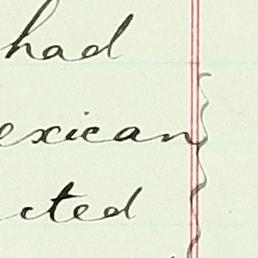 had
exican
cted